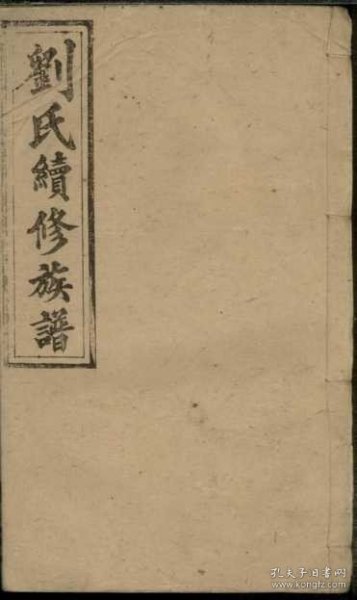 劉氏續修族譜
孔夫子旧书网
www.kongfz.com